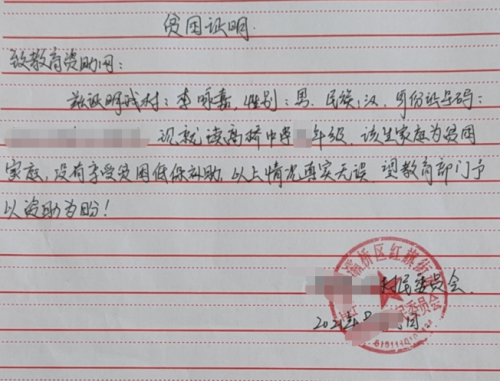 贫困证明
致教育资助网：
兹证明我村：李咏嘉，性别：男，民族：汉，身份证号码：
现就读高桥中学 年级，该生家庭为贫困
家庭，没有享受贫困低保补助，以上情况真实无误，望教育部门予
以资助为盼！
灞桥区红旗街
村民委员会